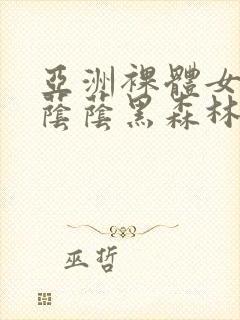 亞洲裸體女
蔭蔭黑森林
巫哲